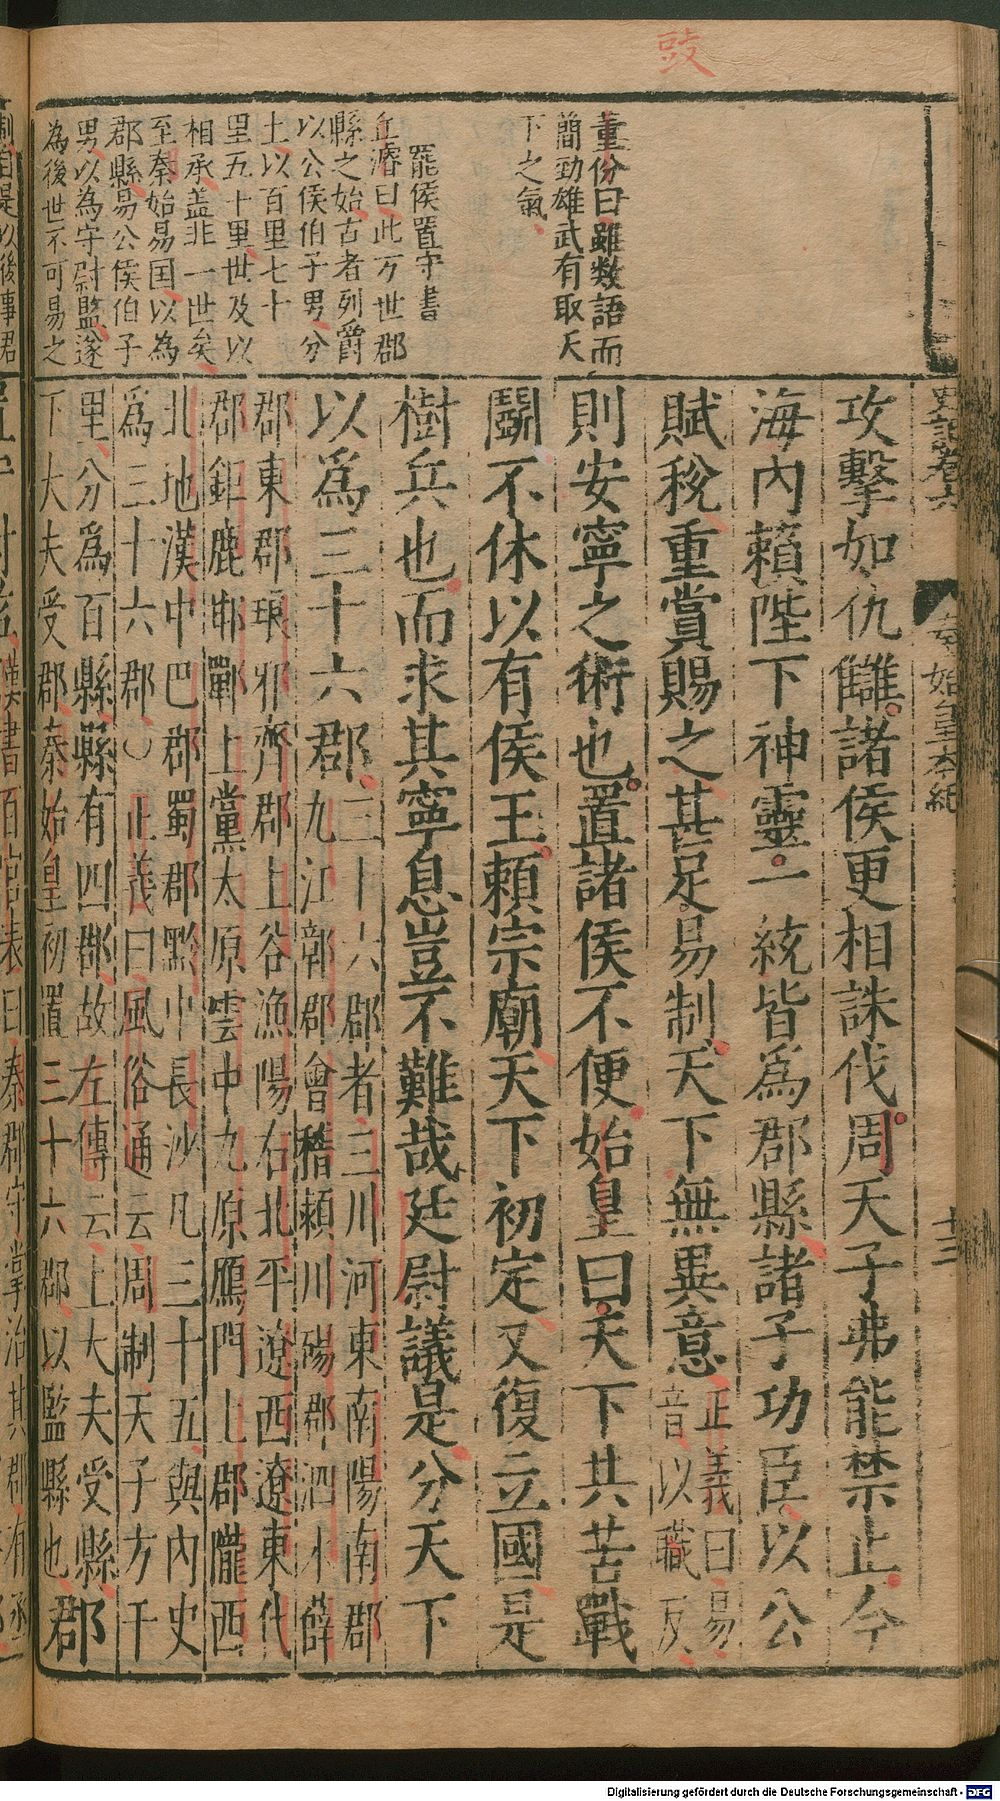 豉
董份曰雖数語而
簡勁雄武有取天
下之氣
罷侯置守書
丘濬曰此万世郡
縣之始古者列爵
以公侯伯子男分
土以百里七十
里五十里世及以
相承盖非一世矣
至秦始易国以為
郡縣易公侯伯子
男以為守尉監遂
為後世不可易之
史記卷六
秦始皇本紀
十三
攻擊如仇讎諸侯更相誅伐周天子弗能禁止今
海內賴陛下神靈一統皆爲郡縣諸子功臣以公
賦稅重賞賜之甚足易制天下無異意
正義曰易
音以職反
則安寧之術也置諸侯不便始皇曰天下共苦戰
鬭不休以有侯王賴宗廟天下初定又復立國是
樹兵也而求其寧息豈不難哉廷尉議是分天下
以爲三十六郡
三十六郡者三川河東南陽南郡
九江鄣郡會稽潁川碭郡泗水薛
郡東郡琅邪齊郡上谷漁陽右北平遼西遼東代
郡鉅鹿邯鄲上黨太原雲中九原鴈門上郡隴西
北地漢中巴郡蜀郡黔中長沙凡三十五與內史
爲三十六郡○正義曰風俗通云周制天子方千
里分爲百縣縣有四郡故左傳云上大夫受縣
下大夫受郡秦始皇初置三十六郡以監縣也
郡
漢書百官表曰秦郡守掌治其郡有丞
Digitalisierung gefördert durch die Deutsche Forschungsgemeinschaft - DFG